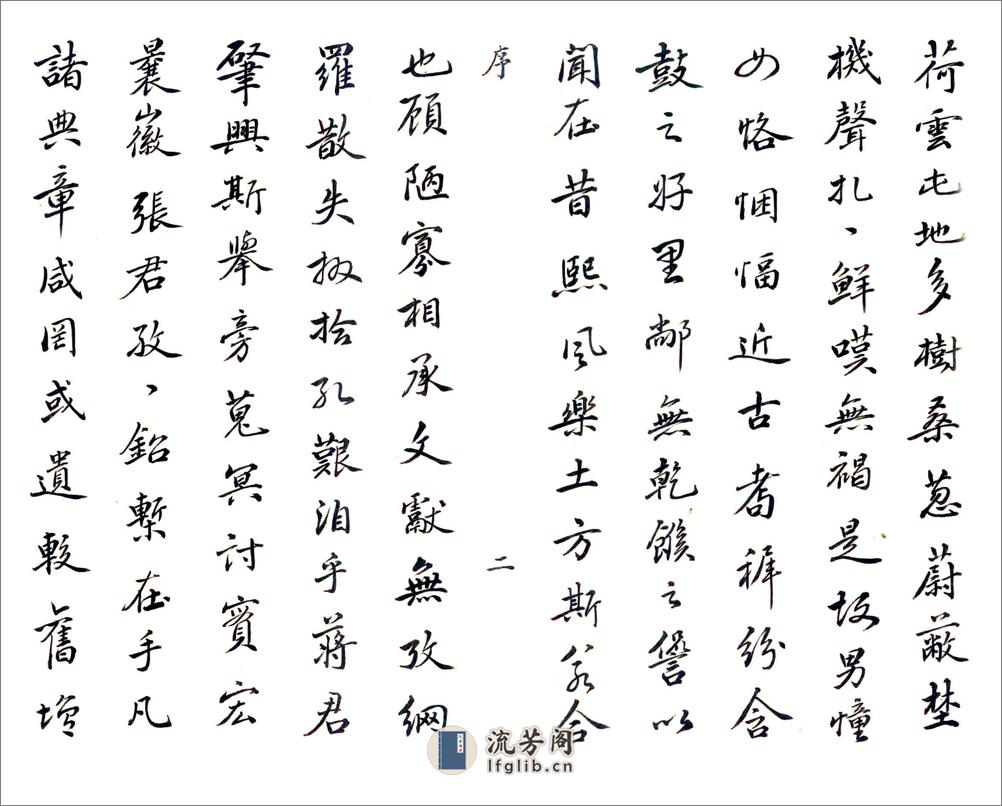 荷雲屯地多樹桑蔥蔚蔽埜
機聲扎丶鮮嘆無褐是故男憧
女恪悃愊近古耆稺紛含
鼓之好里鄙無乾餱之諐以
聞在昔熙風樂土方斯若合
序 二
也顧陋寡相承文獻無攷網
羅散失掇拾孔艱洎乎蔣君
肇興斯舉旁蒐冥討實宏
曩徽張君孜丶鉛槧在手凡
諸典章咸罔或遺較舊增
流芳阁
lfglib.cn